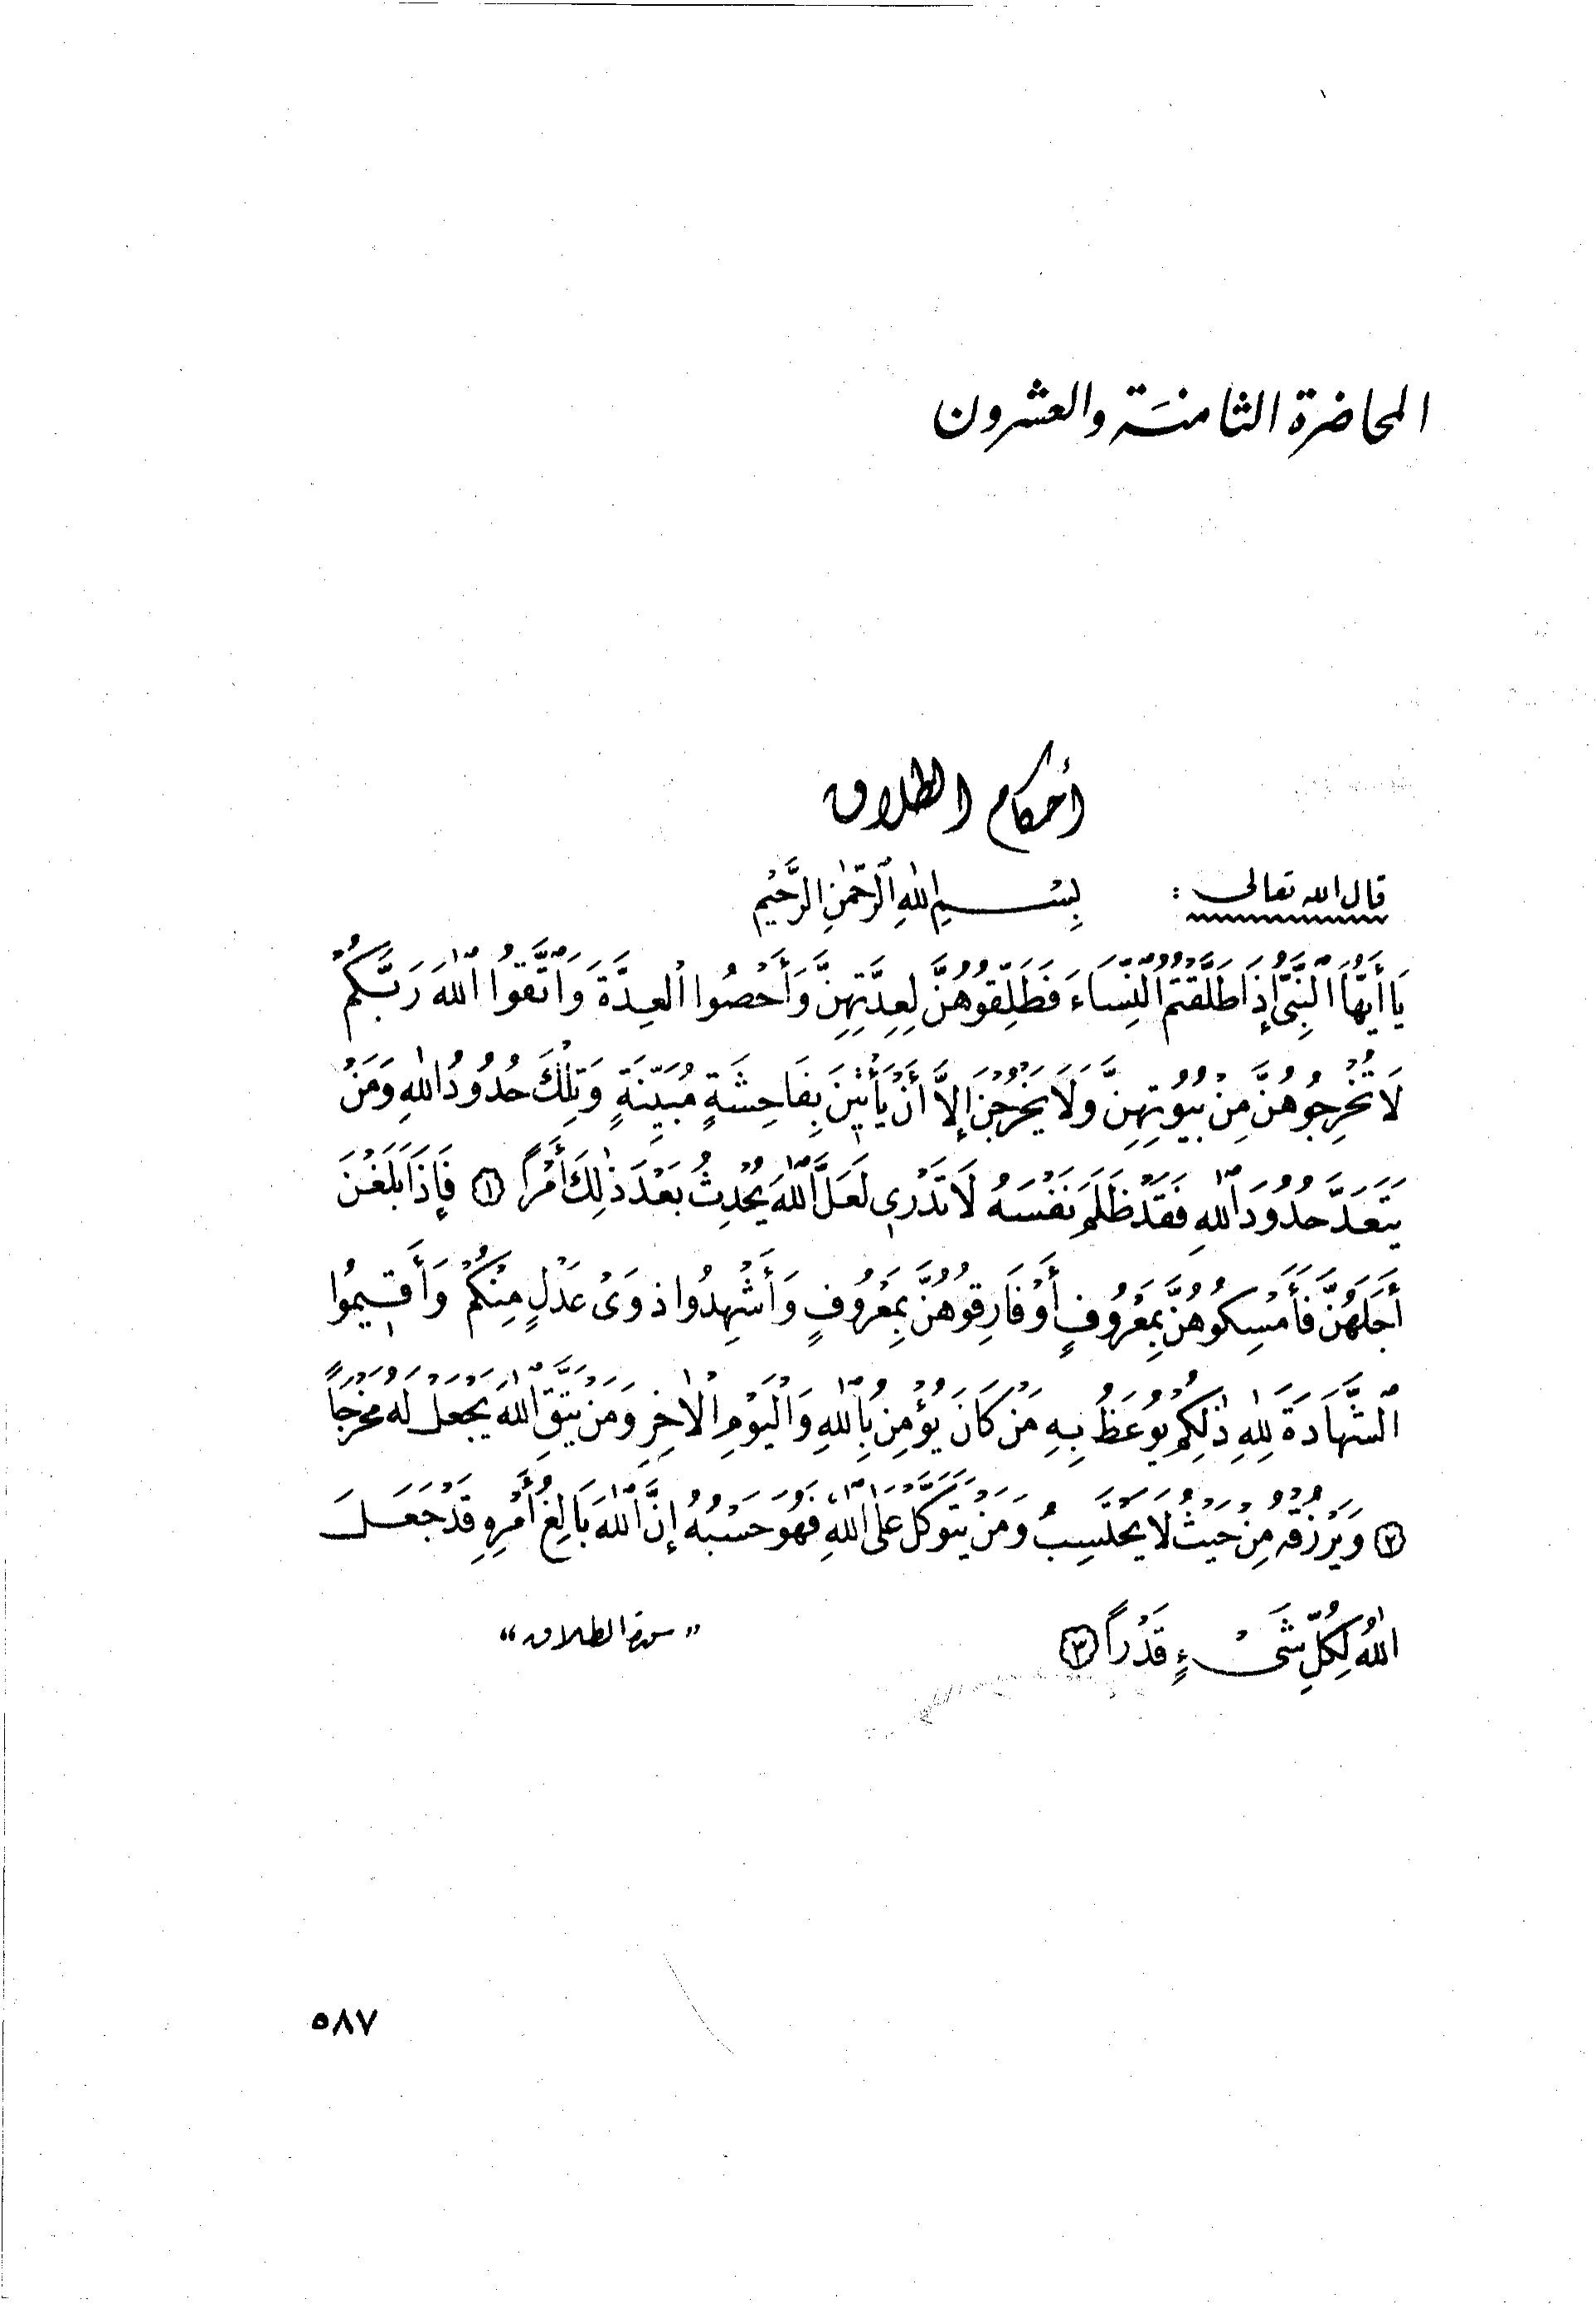 المحاضرة الثامنة والعشرون
أحكام الطلاق
قال الله تعالى :
بِسْمِ اللهِ الرَّحْمٰنِ الرَّحِيْمِ
يَا أَيُّهَا النَّبِىُّ إِذَا طَلَّقْتُمُ النِّسَاءَ فَطَلِّقُوهُنَّ لِعِدَّتِهِنَّ وَأَحْصُوا الْعِدَّةَ وَاتَّقُوا اللهَ رَبَّكُمْ
لَا تُخْرِجُوهُنَّ مِنْ بُيُوتِهِنَّ وَلَا يَخْرُجْنَ إِلاَّ أَنْ يَأْتِيْنَ بِفَاحِشَةٍ مُبَيِّنَةٍ وَتِلْكَ حُدُودُ اللهِ وَمَنْ
يَتَعَدَّ حُدُودَ اللهِ فَقَدْ ظَلَمَ نَفْسَهُ لَا تَدْرِى لَعَلَّ اللهَ يُحْدِثُ بَعْدَ ذٰلِكَ أَمْرًا ١ فَإِذَا بَلَغْنَ
أَجَلَهُنَّ فَأَمْسِكُوهُنَّ بِمَعْرُوفٍ أَوْ فَارِقُوهُنَّ بِمَعْرُوفٍ وَأَشْهِدُوا ذَوَىْ عَدْلٍ مِنْكُمْ وَأَقِيمُوا
الشَّهَادَةَ لِلهِ ذٰلِكُمْ يُوعَظُ بِهِ مَنْ كَانَ يُؤْمِنُ بِاللهِ وَالْيَوْمِ الْاٰخِرِ وَمَنْ يَتَّقِ اللهَ يَجْعَلْ لَهُ مَخْرَجاً
٢ وَيَرْزُقْهُ مِنْ حَيْثُ لَا يَحْتَسِبُ وَمَنْ يَتَوَكَّلْ عَلَى اللهِ فَهُوَ حَسْبُهُ إِنَّ اللهَ بَالِغُ أَمْرِهِ قَدْ جَعَلَ
اللهُ لِكُلِّ شَىْءٍ قَدْراً ٣
"سورة الطلاق"
٥٨٧